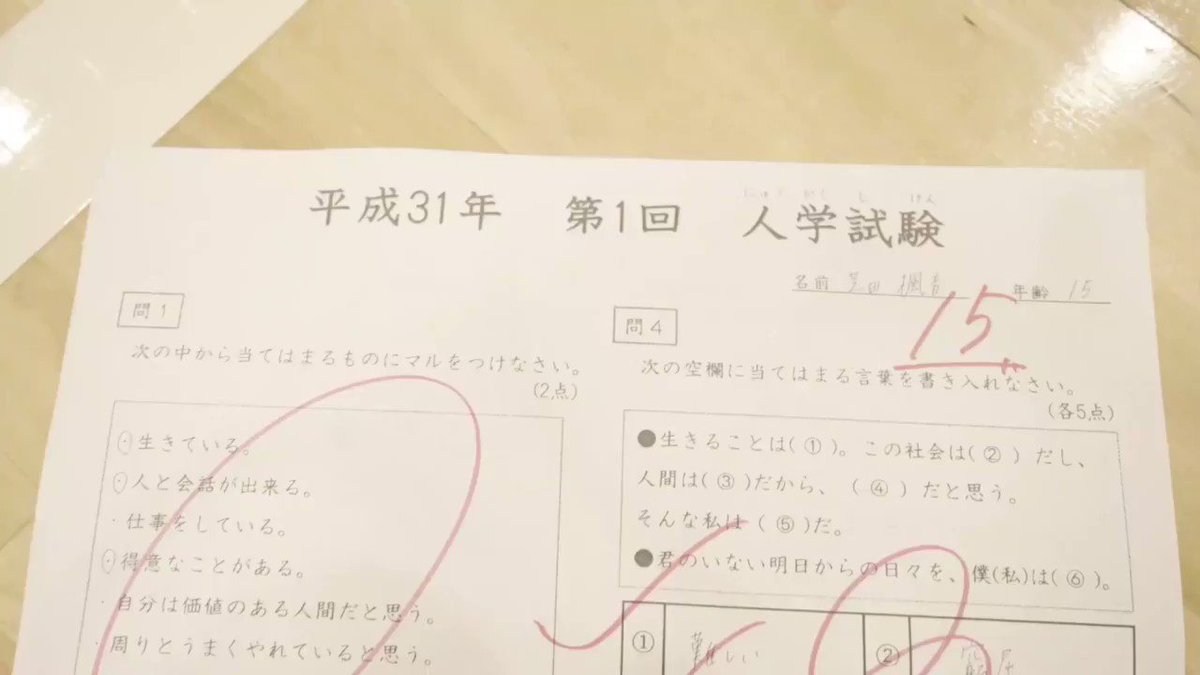 平成31年 第1回 人学試験
にゅうがくしけん
名前 芝田 楓音 年齢 15
15
問1
次の中から当てはまるものにマルをつけなさい。
(2点)
・生きている。
・人と会話が出来る。
・仕事をしている。
・得意なことがある。
・自分は価値のある人間だと思う。
・周りとうまくやれていると思う。
問4
次の空欄に当てはまる言葉を書き入れなさい。
(各5点)
●生きることは(①)。この社会は(②)だし、
人間は(③)だから、(④)だと思う。
そんな私は(⑤)だ。
●君のいない明日からの日々を、僕(私)は(⑥)。
① 難しい ② 窮屈